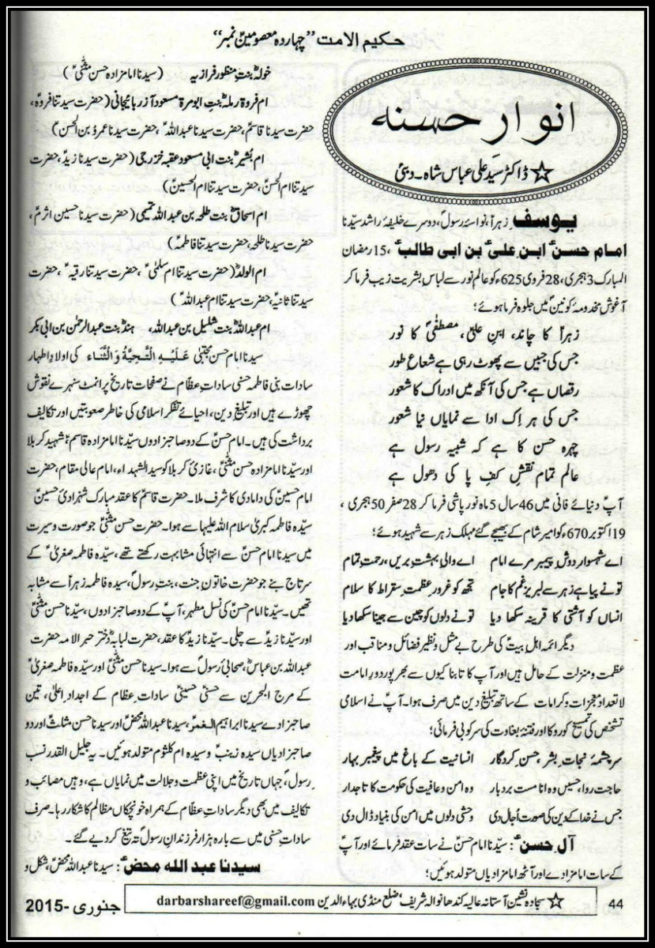 حکیم الامت "چہاردہ معصومین نمبر"
انوار حسنہ
☆ ڈاکٹر سید علی عباس شاہ۔ دبئ
یوسفِ زہراؑ، نواسۂ رسولؐ، دوسرے خلیفۂ راشد سیدنا
امام حسن ابن علی بن ابی طالب، 15 رمضان
المبارک 3 ہجری، 28 فروی 625ء کو عالم نور سے لباس بشریت زیب فرما کر
آغوش مخدومہ کونین میں جلوہ فرما ہوئے؛
زہرا کا چاند، ابن علی، مصطفیٰ کا نور
جس کی جبیں سے پھوٹ رہی ہے شعاع طور
رقصاں ہے جس کی آنکھ میں ادراک کا شعور
جس کی ہر اک ادا سے نمایاں نیا شعور
چہرہ حسن کا ہے کہ شبیہ رسول ہے
عالم تمام نقش کف پا کی دھول ہے
آپؑ دنیائے فانی میں 46 سال 5 ماہ نور پاشی فرما کر 28 صفر 50 ہجری،
19 اکتوبر 670ء کو امیر شام کے بھیجے گئے مہلک زہر سے شہید ہوئے؛
اے شہسوار دوش پیمبر مرے امام اے والی بہشت بریں، رحمت تمام
تو نے پیا ہے زہر سے لبریز غم کا جام تجھ کو غرور عظمت سقراط کا سلام
انساں کو آشتی کا قرینہ سکھا دیا تو نے دلوں کو چین سے جینا سکھا دیا
دیگر ائمہ اہل بیتؑ کی طرح بے مثل و نظیر فضائل و مناقب اور
عظمت و منزلت کے حامل ہیں اور آپ کا تابناکیوں سے بھرپور دور امامت
لا تعداد معجزات و کرامات کے ساتھ تبلیغ دین میں صرف ہوا۔ آپ نے اسلامی
تشخص کی تمسیخ کو روکا اور فتنۂ بغاوت کی سرکوبی فرمائی؛
سرچشمۂ نجات بشر، حسن کردگار انسانیت کے باغ میں پیغمبر بہار
حاجت روا، حسیں وہ انامست بردبار وہ امن و عافیت کی حکومت کا تاجدار
جس نے خدا کے دین کی صورت اُجال دی وحشی دلوں میں امن کی بنیاد ڈال دی
آل حسن: سیدنا امام حسن نے سات عقد فرمائے اور آپ
کے سات امامزادے اور آٹھ امامزادیاں متولد ہوئیں؛
خولہ بنت منظور فرازیہ (سیدنا امامزادہ حسن مثنیٰ)
ام فروۃ رملہ بنت ابو مرۃ مسعود آذربائیجانی (حضرت سیدنا فروہ،
حضرت سیدنا قاسم، حضرت سیدنا عبداللہ، حضرت سیدنا عمرو بن الحسن)
ام بشیر بنت ابی مسعود عقبہ خزرجی (حضرت سیدنا زید، حضرت
سیدتنا ام الحسن، حضرت سیدتنا ام الحسین)
ام اسحاق بنت طلحہ بن عبداللہ تیمی (حضرت سیدنا حسین اثرم،
حضرت سیدنا طلحہ، حضرت سیدتنا فاطمہ)
ام الولد (حضرت سیدتنا ام سلمیٰ، حضرت سیدتنا رقیہ، حضرت
سیدتنا ثانیہ، حضرت سیدتنا ام عبداللہ)
ام عبداللہ بنت شلیل بن عبداللہ، ہند بنت عبدالرحمٰن بن ابی بکر
سیدنا امام حسن مجتبیٰ عَلَیْهِ التَّحِیَّةُ وَ الثَّنَاء کی اولاد اطہار
سادات بنی فاطمہ حسنی سادات عظام نے صفحات تاریخ پر انمٹ سنہرے نقوش
چھوڑے ہیں اور تبلیغ دین، احیائے تفکر اسلامی کی خاطر صعوبتیں اور تکالیف
برداشت کی ہیں۔ امام حسن کے دو صاحبزادوں سیدنا امامزادہ قاسم شہید کربلا
اور سیدنا امامزادہ حسن مثنیٰ، غازی کربلا کو سید الشہداء، امام عالی مقام، حضرت
امام حسین کی دامادی کا شرف ملا۔ حضرت قاسم کا عقد مبارک شہزادی حسین
سیدہ فاطمہ کبریٰ سلام اللہ علیہا سے ہوا۔ حضرت حسن مثنیٰ جو صورت و سیرت
میں سیدنا امام حسن سے انتہائی مشابہت رکھتے تھے، سیدہ فاطمہ صغریٰ کے
سرتاج بنے جو حضرت خاتون جنت، بنت رسول، سیدہ فاطمہ زہرا سے مشابہ
تھیں۔ سیدنا امام حسن کی نسل مطہر، آپ کے دو صاحبزادوں، سیدنا حسن مثنیٰ
اور سیدنا زید سے چلی۔ سیدنا زید کا عقد، حضرت لبابہ دختر حبر الامہ حضرت
عبداللہ بن عباس، صحابی رسول سے ہوا۔ سیدنا حسن مثنیٰ اور سیدہ فاطمہ صغریٰ
کے مرج البحرین سے حسنی حسینی سادات عظام کے اجداد اعلیٰ، تین
صاحبزادے سیدنا ابراہیم الغمر، سیدنا عبداللہ محض اور سیدنا حسن مثلث اور دو
صاحبزادیاں سیدہ زینب و سیدہ ام کلثوم متولد ہوئیں۔ یہ جلیل القدر نسب
رسول، جہاں تاریخ میں اپنی عظمت و جلالت میں نمایاں ہے، وہیں مصائب و
تکالیف میں بھی دیگر سادات عظام کے ہمراہ خونچکاں مظالم کا شکار رہا۔ صرف
سادات حسنی میں سے بارہ ہزار فرزندان رسول تہ تیغ کر دیے گئے۔
سیدنا عبد اللہ محض: سیدنا عبداللہ محض، شکل و
44
☆ سجادہ نشین آستانہ عالیہ کندھانوالہ شریف، ضلع منڈی بہاء الدین darbarshareef@gmail.com
جنوری -2015